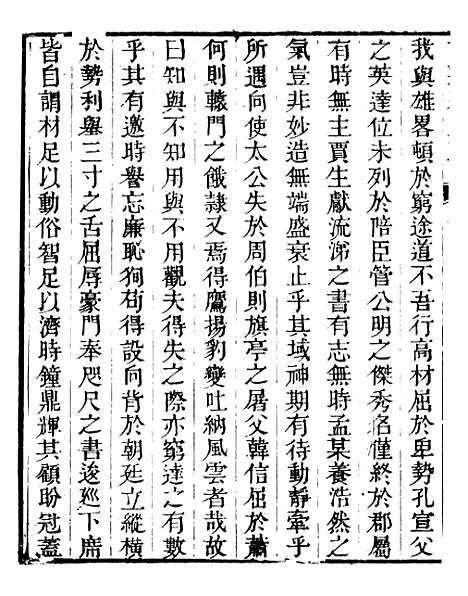 我與雄畧頓於窮途道不吾行高材屈於卑勢孔宣父
之英達位未列於陪臣管公明之傑秀名僅終於郡屬
有時無主賈生獻流涕之書有志無時孟某養浩然之
氣豈非妙造無端盛衰止乎其域神期有待動靜牽乎
所遇向使太公失於周伯則旗亭之屠父韓信屈於蕭
何則轅門之餓隸又焉得鷹揚豹變吐納風雲者哉故
曰知與不知用與不用觀夫得失之際亦窮達之有數
乎其有邀時譽忘廉恥狥茍得設向背於朝廷立縱橫
於勢利舉三寸之舌屈辱豪門奉咫尺之書逡廵下席
皆自謂材足以動俗智足以濟時鐘鼎輝其顧盼冠蓋